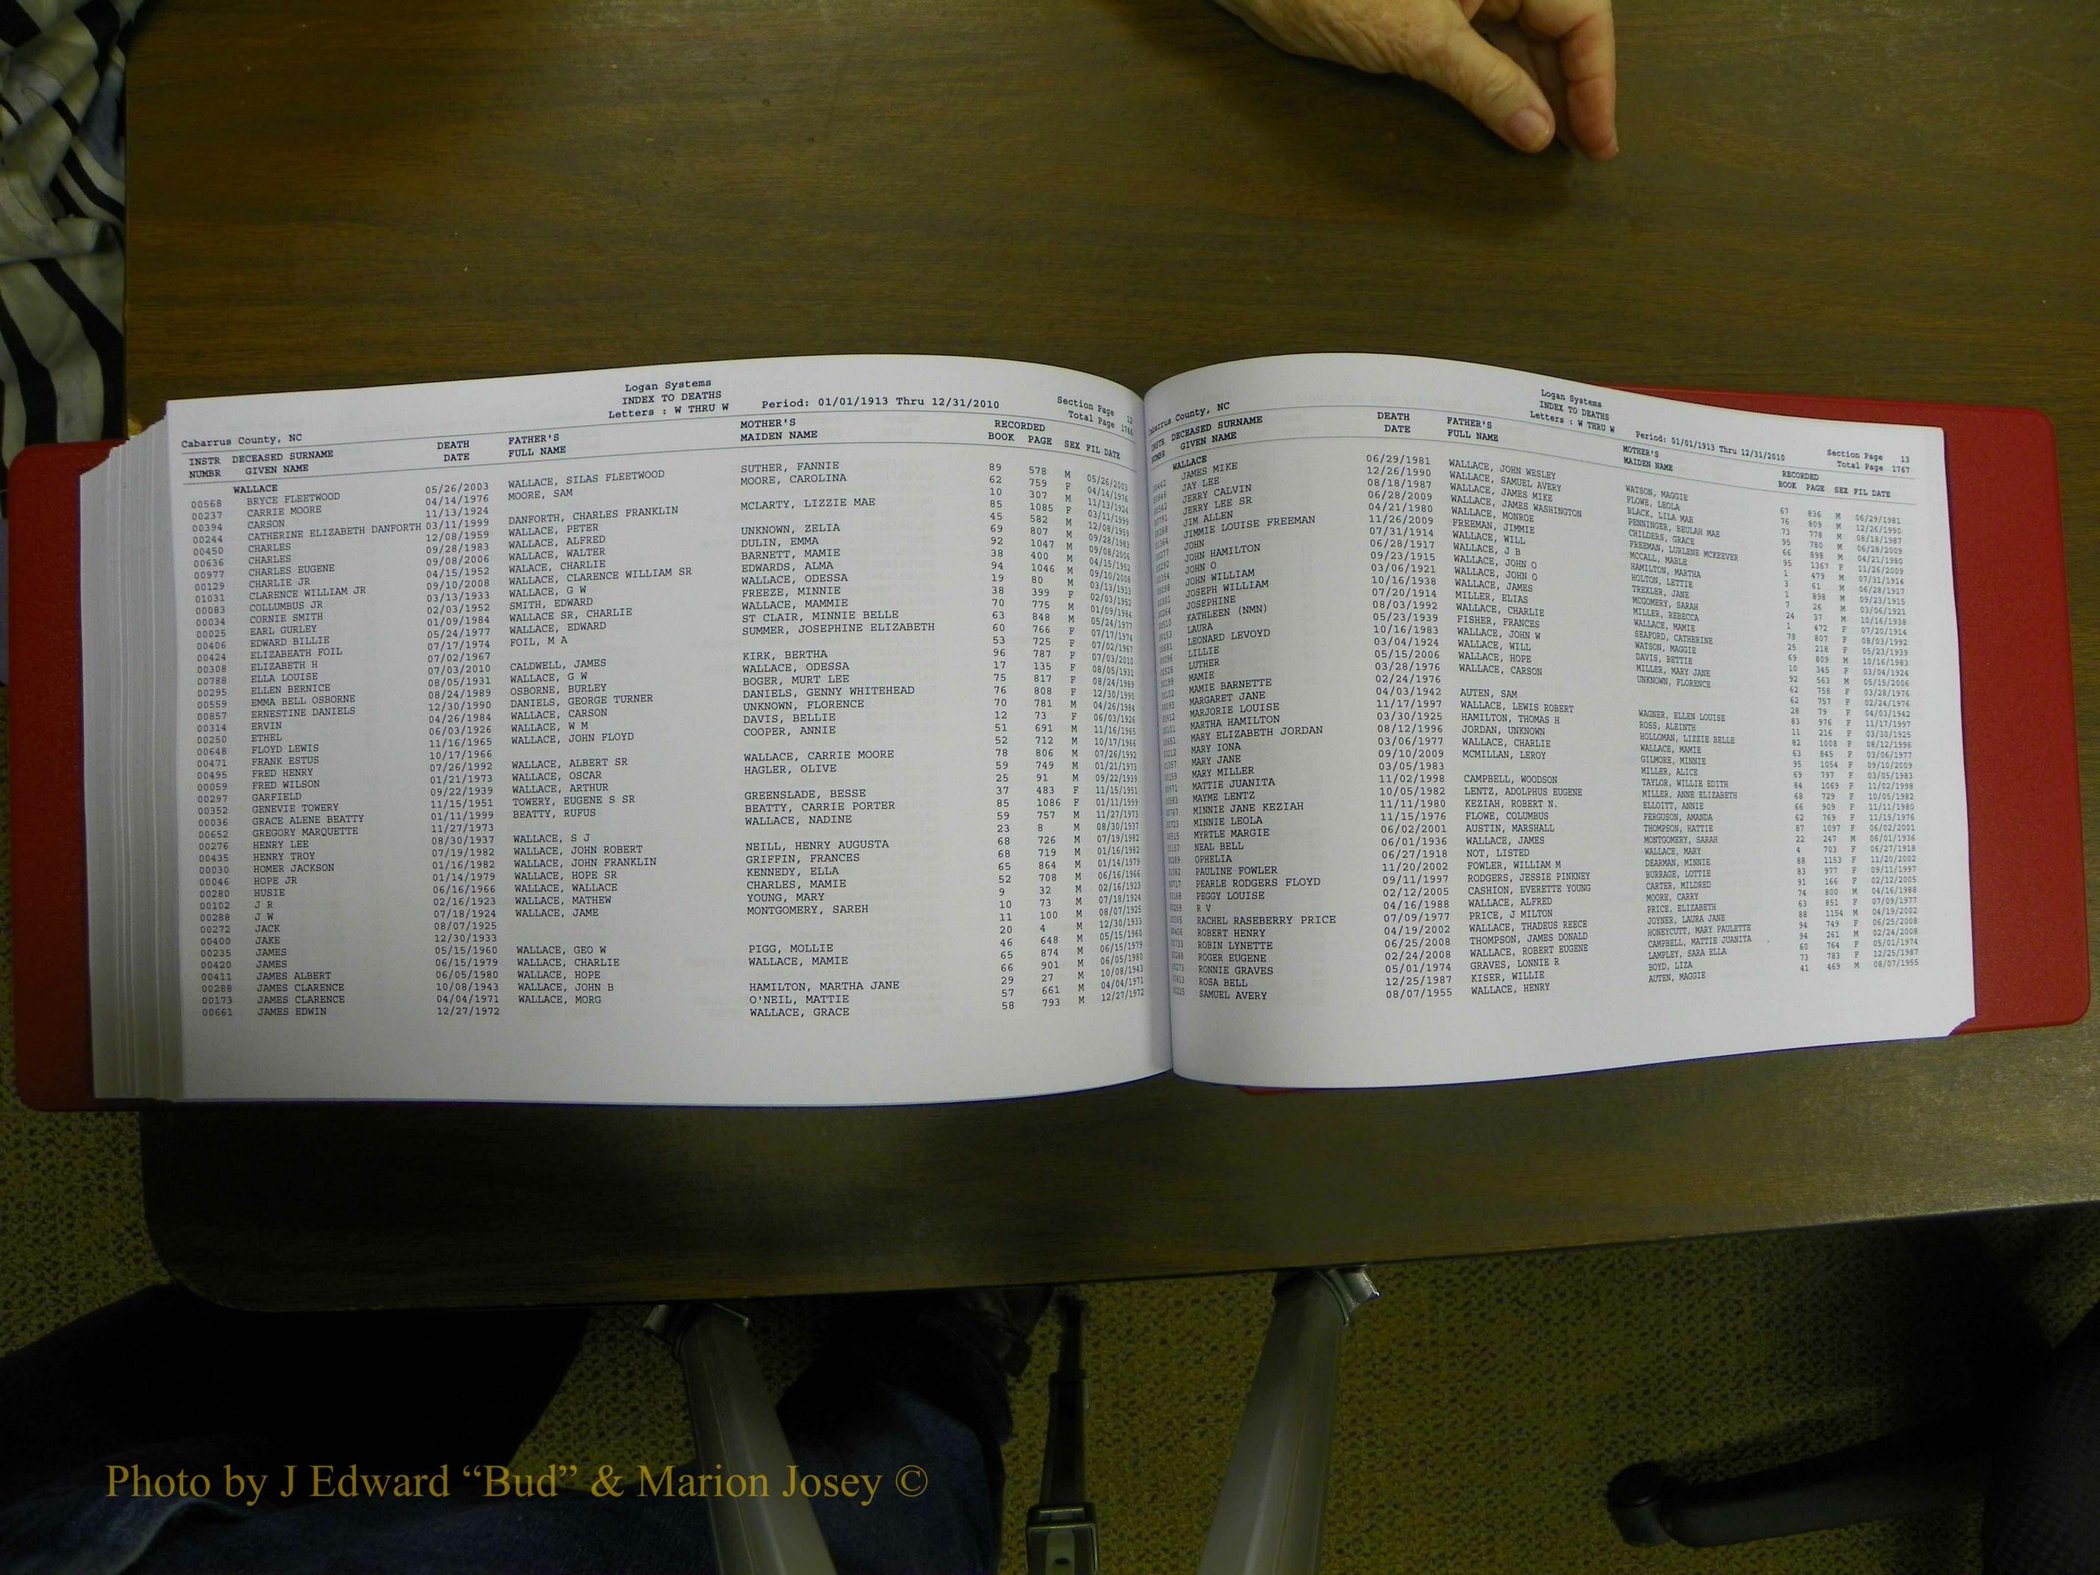 Logan Systems
INDEX TO DEATHS
Letters : W THRU W Period: 01/01/1913 Thru 12/31/2010
Section Page 12
Total Page 1766
Cabarrus County, NC
INSTR DECEASED SURNAME DEATH FATHER'S MOTHER'S RECORDED
NUMBR GIVEN NAME DATE FULL NAME MAIDEN NAME BOOK PAGE SEX FIL DATE
WALLACE
00568 BRYCE FLEETWOOD 05/26/2003 WALLACE, SILAS FLEETWOOD SUTHER, FANNIE 89 578 M 05/26/2003
00237 CARRIE MOORE 04/14/1976 MOORE, SAM MOORE, CAROLINA 62 759 F 04/14/1976
00394 CARSON 11/13/1924 10 307 M 11/13/1924
00244 CATHERINE ELIZABETH DANFORTH 03/11/1999 DANFORTH, CHARLES FRANKLIN MCLARTY, LIZZIE MAE 85 1085 F 03/11/1999
00450 CHARLES 12/08/1959 WALLACE, PETER 45 582 M 12/08/1959
00636 CHARLES 09/28/1983 WALLACE, ALFRED UNKNOWN, ZELIA 69 807 M 09/28/1983
00977 CHARLES EUGENE 09/08/2006 WALLACE, WALTER DULIN, EMMA 92 1047 M 09/08/2006
00129 CHARLIE JR 04/15/1952 WALACE, CHARLIE BARNETT, MAMIE 38 400 M 04/15/1952
01031 CLARENCE WILLIAM JR 09/10/2008 WALLACE, CLARENCE WILLIAM SR EDWARDS, ALMA 94 1046 M 09/10/2008
00083 COLLUMBUS JR 03/13/1933 WALLACE, G W WALLACE, ODESSA 19 80 M 03/13/1933
00034 CORNIE SMITH 02/03/1952 SMITH, EDWARD FREEZE, MINNIE 38 399 F 02/03/1952
00025 EARL GURLEY 01/09/1984 WALLACE SR, CHARLIE WALLACE, MAMMIE 70 775 M 01/09/1984
00406 EDWARD BILLIE 05/24/1977 WALLACE, EDWARD ST CLAIR, MINNIE BELLE 63 848 M 05/24/1977
00424 ELIZABEATH FOIL 07/17/1974 FOIL, M A SUMMER, JOSEPHINE ELIZABETH 60 766 F 07/17/1974
00308 ELIZABETH H 07/02/1967 53 725 F 07/02/1967
00788 ELLA LOUISE 07/03/2010 CALDWELL, JAMES KIRK, BERTHA 96 787 F 07/03/2010
00295 ELLEN BERNICE 08/05/1931 WALLACE, G W WALLACE, ODESSA 17 135 F 08/05/1931
00559 EMMA BELL OSBORNE 08/24/1989 OSBORNE, BURLEY BOGER, MURT LEE 75 817 F 08/24/1989
00857 ERNESTINE DANIELS 12/30/1990 DANIELS, GEORGE TURNER DANIELS, GENNY WHITEHEAD 76 808 F 12/30/1990
00314 ERVIN 04/26/1984 WALLACE, CARSON UNKNOWN, FLORENCE 70 781 M 04/26/1984
00250 ETHEL 06/03/1926 WALLACE, W M DAVIS, BELLIE 12 73 F 06/03/1926
00648 FLOYD LEWIS 11/16/1965 WALLACE, JOHN FLOYD COOPER, ANNIE 51 691 M 11/16/1965
00471 FRANK ESTUS 10/17/1966 52 712 M 10/17/1966
00495 FRED HENRY 07/26/1992 WALLACE, ALBERT SR WALLACE, CARRIE MOORE 78 806 M 07/26/1992
00059 FRED WILSON 01/21/1973 WALLACE, OSCAR HAGLER, OLIVE 59 749 M 01/21/1973
00297 GARFIELD 09/22/1939 WALLACE, ARTHUR 25 91 M 09/22/1939
00352 GENEVIE TOWERY 11/15/1951 TOWERY, EUGENE S SR GREENSLADE, BESSE 37 483 F 11/15/1951
00036 GRACE ALENE BEATTY 01/11/1999 BEATTY, RUFUS BEATTY, CARRIE PORTER 85 1086 F 01/11/1999
00652 GREGORY MARQUETTE 11/27/1973 WALLACE, NADINE 59 757 M 11/27/1973
00276 HENRY LEE 08/30/1937 WALLACE, S J 23 8 M 08/30/1937
00435 HENRY TROY 07/19/1982 WALLACE, JOHN ROBERT NEILL, HENRY AUGUSTA 68 726 M 07/19/1982
00030 HOMER JACKSON 01/16/1982 WALLACE, JOHN FRANKLIN GRIFFIN, FRANCES 68 719 M 01/16/1982
00046 HOPE JR 01/14/1979 WALLACE, HOPE SR KENNEDY, ELLA 65 864 M 01/14/1979
00280 HUSIE 06/16/1966 WALLACE, WALLACE CHARLES, MAMIE 52 708 M 06/16/1966
00102 J R 02/16/1923 WALLACE, MATHEW YOUNG, MARY 9 32 M 02/16/1923
00288 J W 07/18/1924 WALLACE, JAME MONTGOMERY, SAREH 10 73 M 07/18/1924
00272 JACK 08/07/1925 11 100 M 08/07/1925
00400 JAKE 12/30/1933 20 4 M 12/30/1933
00235 JAMES 05/15/1960 WALLACE, GEO W PIGG, MOLLIE 46 648 M 05/15/1960
00420 JAMES 06/15/1979 WALLACE, CHARLIE WALLACE, MAMIE 65 874 M 06/15/1979
00411 JAMES ALBERT 06/05/1980 WALLACE, HOPE 66 901 M 06/05/1980
00288 JAMES CLARENCE 10/08/1943 WALLACE, JOHN B HAMILTON, MARTHA JANE 29 27 M 10/08/1943
00173 JAMES CLARENCE 04/04/1971 WALLACE, MORG O'NEIL, MATTIE 57 661 M 04/04/1971
00661 JAMES EDWIN 12/27/1972 WALLACE, GRACE 58 793 M 12/27/1972
Logan Systems
INDEX TO DEATHS
Letters : W THRU W Period: 01/01/1913 Thru 12/31/2010
Section Page 13
Total Page 1767
Cabarrus County, NC
INSTR DECEASED SURNAME DEATH FATHER'S MOTHER'S RECORDED
NUMBR GIVEN NAME DATE FULL NAME MAIDEN NAME BOOK PAGE SEX FIL DATE
WALLACE
JAMES MIKE 06/29/1981 WALLACE, JOHN WESLEY WATSON, MAGGIE 67 836 M 06/29/1981
JAY LEE 12/26/1990 WALLACE, SAMUEL AVERY FLOWE, LEOLA 76 809 M 12/26/1990
JERRY CALVIN 08/18/1987 WALLACE, JAMES MIKE BLACK, LILA MAE 73 778 M 08/18/1987
JERRY LEE SR 06/28/2009 WALLACE, JAMES WASHINGTON PENNINGER, BEULAH MAE 95 780 M 06/28/2009
JIM ALLEN 04/21/1980 WALLACE, MONROE CHILDERS, GRACE 66 898 M 04/21/1980
JIMMIE LOUISE FREEMAN 11/26/2009 FREEMAN, JIMMIE FREEMAN, LURLENE MCKEEVER 95 1367 F 11/26/2009
JOHN 07/31/1914 WALLACE, WILL MCCALL, MABLE 1 479 M 07/31/1914
JOHN HAMILTON 06/28/1917 WALLACE, J B HAMILTON, MARTHA 3 61 M 06/28/1917
JOHN O 09/23/1915 WALLACE, JOHN O HOLTON, LETTIE 1 898 M 09/23/1915
JOHN WILLIAM 03/06/1921 WALLACE, JOHN O TREXLER, JANE 7 26 M 03/06/1921
JOSEPH WILLIAM 10/16/1938 WALLACE, JAMES MCGOMERY, SARAH 24 37 M 10/16/1938
JOSEPHINE 07/20/1914 MILLER, ELIAS MILLER, REBECCA 1 472 F 07/20/1914
KATHLEEN (NMN) 08/03/1992 WALLACE, CHARLIE WALLACE, MAMIE 78 807 F 08/03/1992
LAURA 05/23/1939 FISHER, FRANCES SEAFORD, CATHERINE 25 218 F 05/23/1939
LEONARD LEVOYD 10/16/1983 WALLACE, JOHN W WATSON, MAGGIE 69 809 M 10/16/1983
LILLIE 03/04/1924 WALLACE, WILL DAVIS, BETTIE 10 345 F 03/04/1924
LUTHER 05/15/2006 WALLACE, HOPE MILLER, MARY JANE 92 563 M 05/15/2006
MAMIE 03/28/1976 WALLACE, CARSON UNKNOWN, FLORENCE 62 758 F 03/28/1976
MAMIE BARNETTE 02/24/1976 62 757 F 02/24/1976
MARGARET JANE 04/03/1942 AUTEN, SAM 28 79 F 04/03/1942
MARJORIE LOUISE 11/17/1997 WALLACE, LEWIS ROBERT WAGNER, ELLEN LOUISE 83 976 F 11/17/1997
MARTHA HAMILTON 03/30/1925 HAMILTON, THOMAS H ROSS, ALEINTH 11 216 F 03/30/1925
MARY ELIZABETH JORDAN 08/12/1996 JORDAN, UNKNOWN HOLLOMAN, LIZZIE BELLE 82 1008 F 08/12/1996
MARY IONA 03/06/1977 WALLACE, CHARLIE WALLACE, MAMIE 63 845 F 03/06/1977
MARY JANE 09/10/2009 MCMILLAN, LEROY GILMORE, MINNIE 95 1054 F 09/10/2009
MARY MILLER 03/05/1983 MILLER, ALICE 69 797 F 03/05/1983
MATTIE JUANITA 11/02/1998 CAMPBELL, WOODSON TAYLOR, WILLIE EDITH 84 1069 F 11/02/1998
MAYME LENTZ 10/05/1982 LENTZ, ADOLPHUS EUGENE MILLER, ANNE ELIZABETH 68 729 F 10/05/1982
MINNIE JANE KEZIAH 11/11/1980 KEZIAH, ROBERT N. ELLOITT, ANNIE 66 909 F 11/11/1980
MINNIE LEOLA 11/15/1976 FLOWE, COLUMBUS FERGUSON, AMANDA 62 769 F 11/15/1976
MYRTLE MARGIE 06/02/2001 AUSTIN, MARSHALL THOMPSON, HATTIE 87 1097 F 06/02/2001
NEAL BELL 06/01/1936 WALLACE, JAMES MONTGOMERY, SARAH 22 247 M 06/01/1936
OPHELIA 06/27/1918 NOT, LISTED WALLACE, MARY 4 703 F 06/27/1918
PAULINE FOWLER 11/20/2002 FOWLER, WILLIAM M DEARMAN, MINNIE 88 1153 F 11/20/2002
PEARLE RODGERS FLOYD 09/11/1997 RODGERS, JESSIE PINKNEY BURRAGE, LOTTIE 83 977 F 09/11/1997
PEGGY LOUISE 02/12/2005 CASHION, EVERETTE YOUNG CARTER, MILDRED 91 166 F 02/12/2005
R V 04/16/1988 WALLACE, ALFRED MOORE, CARRY 74 800 M 04/16/1988
RACHEL RASEBERRY PRICE 07/09/1977 PRICE, J MILTON PRICE, ELIZABETH 63 851 F 07/09/1977
ROBERT HENRY 04/19/2002 WALLACE, THADEUS REECE JOYNER, LAURA JANE 88 1154 M 04/19/2002
ROBIN LYNETTE 06/25/2008 THOMPSON, JAMES DONALD HONEYCUTT, MARY PAULETTE 94 749 F 06/25/2008
ROGER EUGENE 02/24/2008 WALLACE, ROBERT EUGENE CAMPBELL, MATTIE JUANITA 94 261 M 02/24/2008
RONNIE GRAVES 05/01/1974 GRAVES, LONNIE R LAMPLEY, SARA ELLA 60 764 F 05/01/1974
ROSA BELL 12/25/1987 KISER, WILLIE BOYD, LIZA 73 783 F 12/25/1987
SAMUEL AVERY 08/07/1955 WALLACE, HENRY AUTEN, MAGGIE 41 469 M 08/07/1955
Photo by J Edward “Bud” & Marion Josey ©